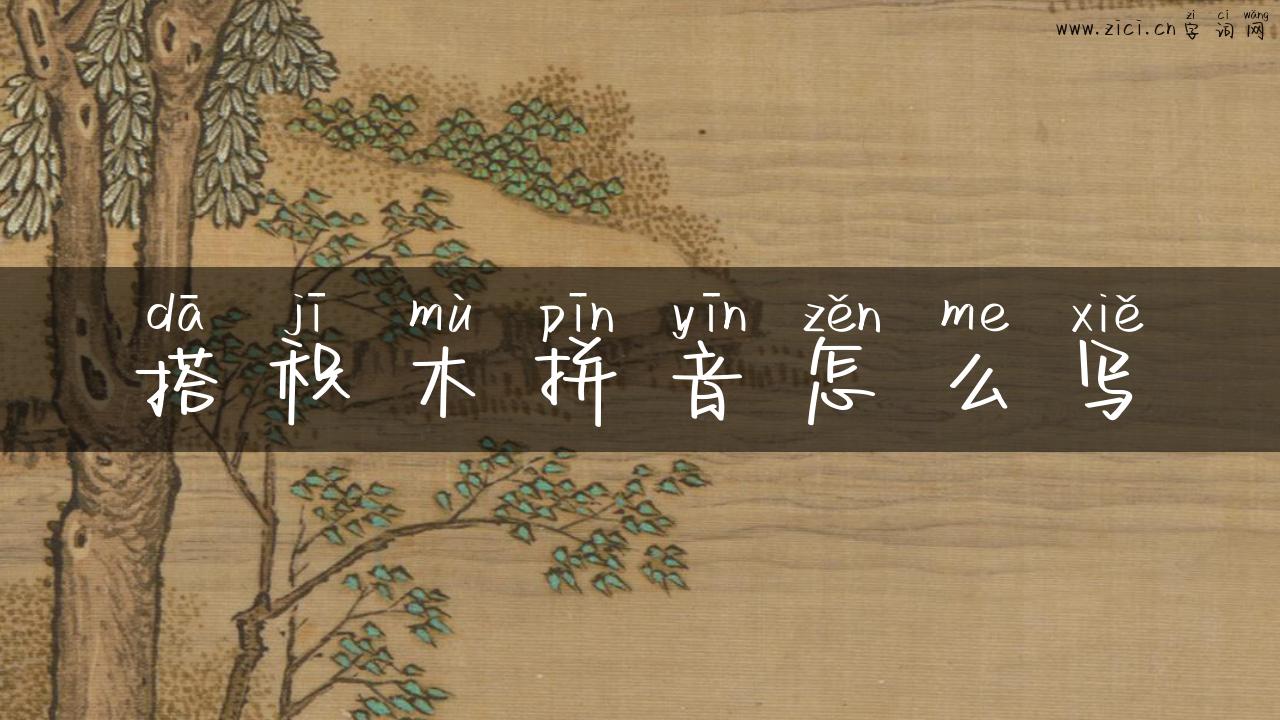 zì cí wǎng
www.zici.cn 字词网
dā jī mù pīn yīn zěn me xiě
搭积木拼音怎么写